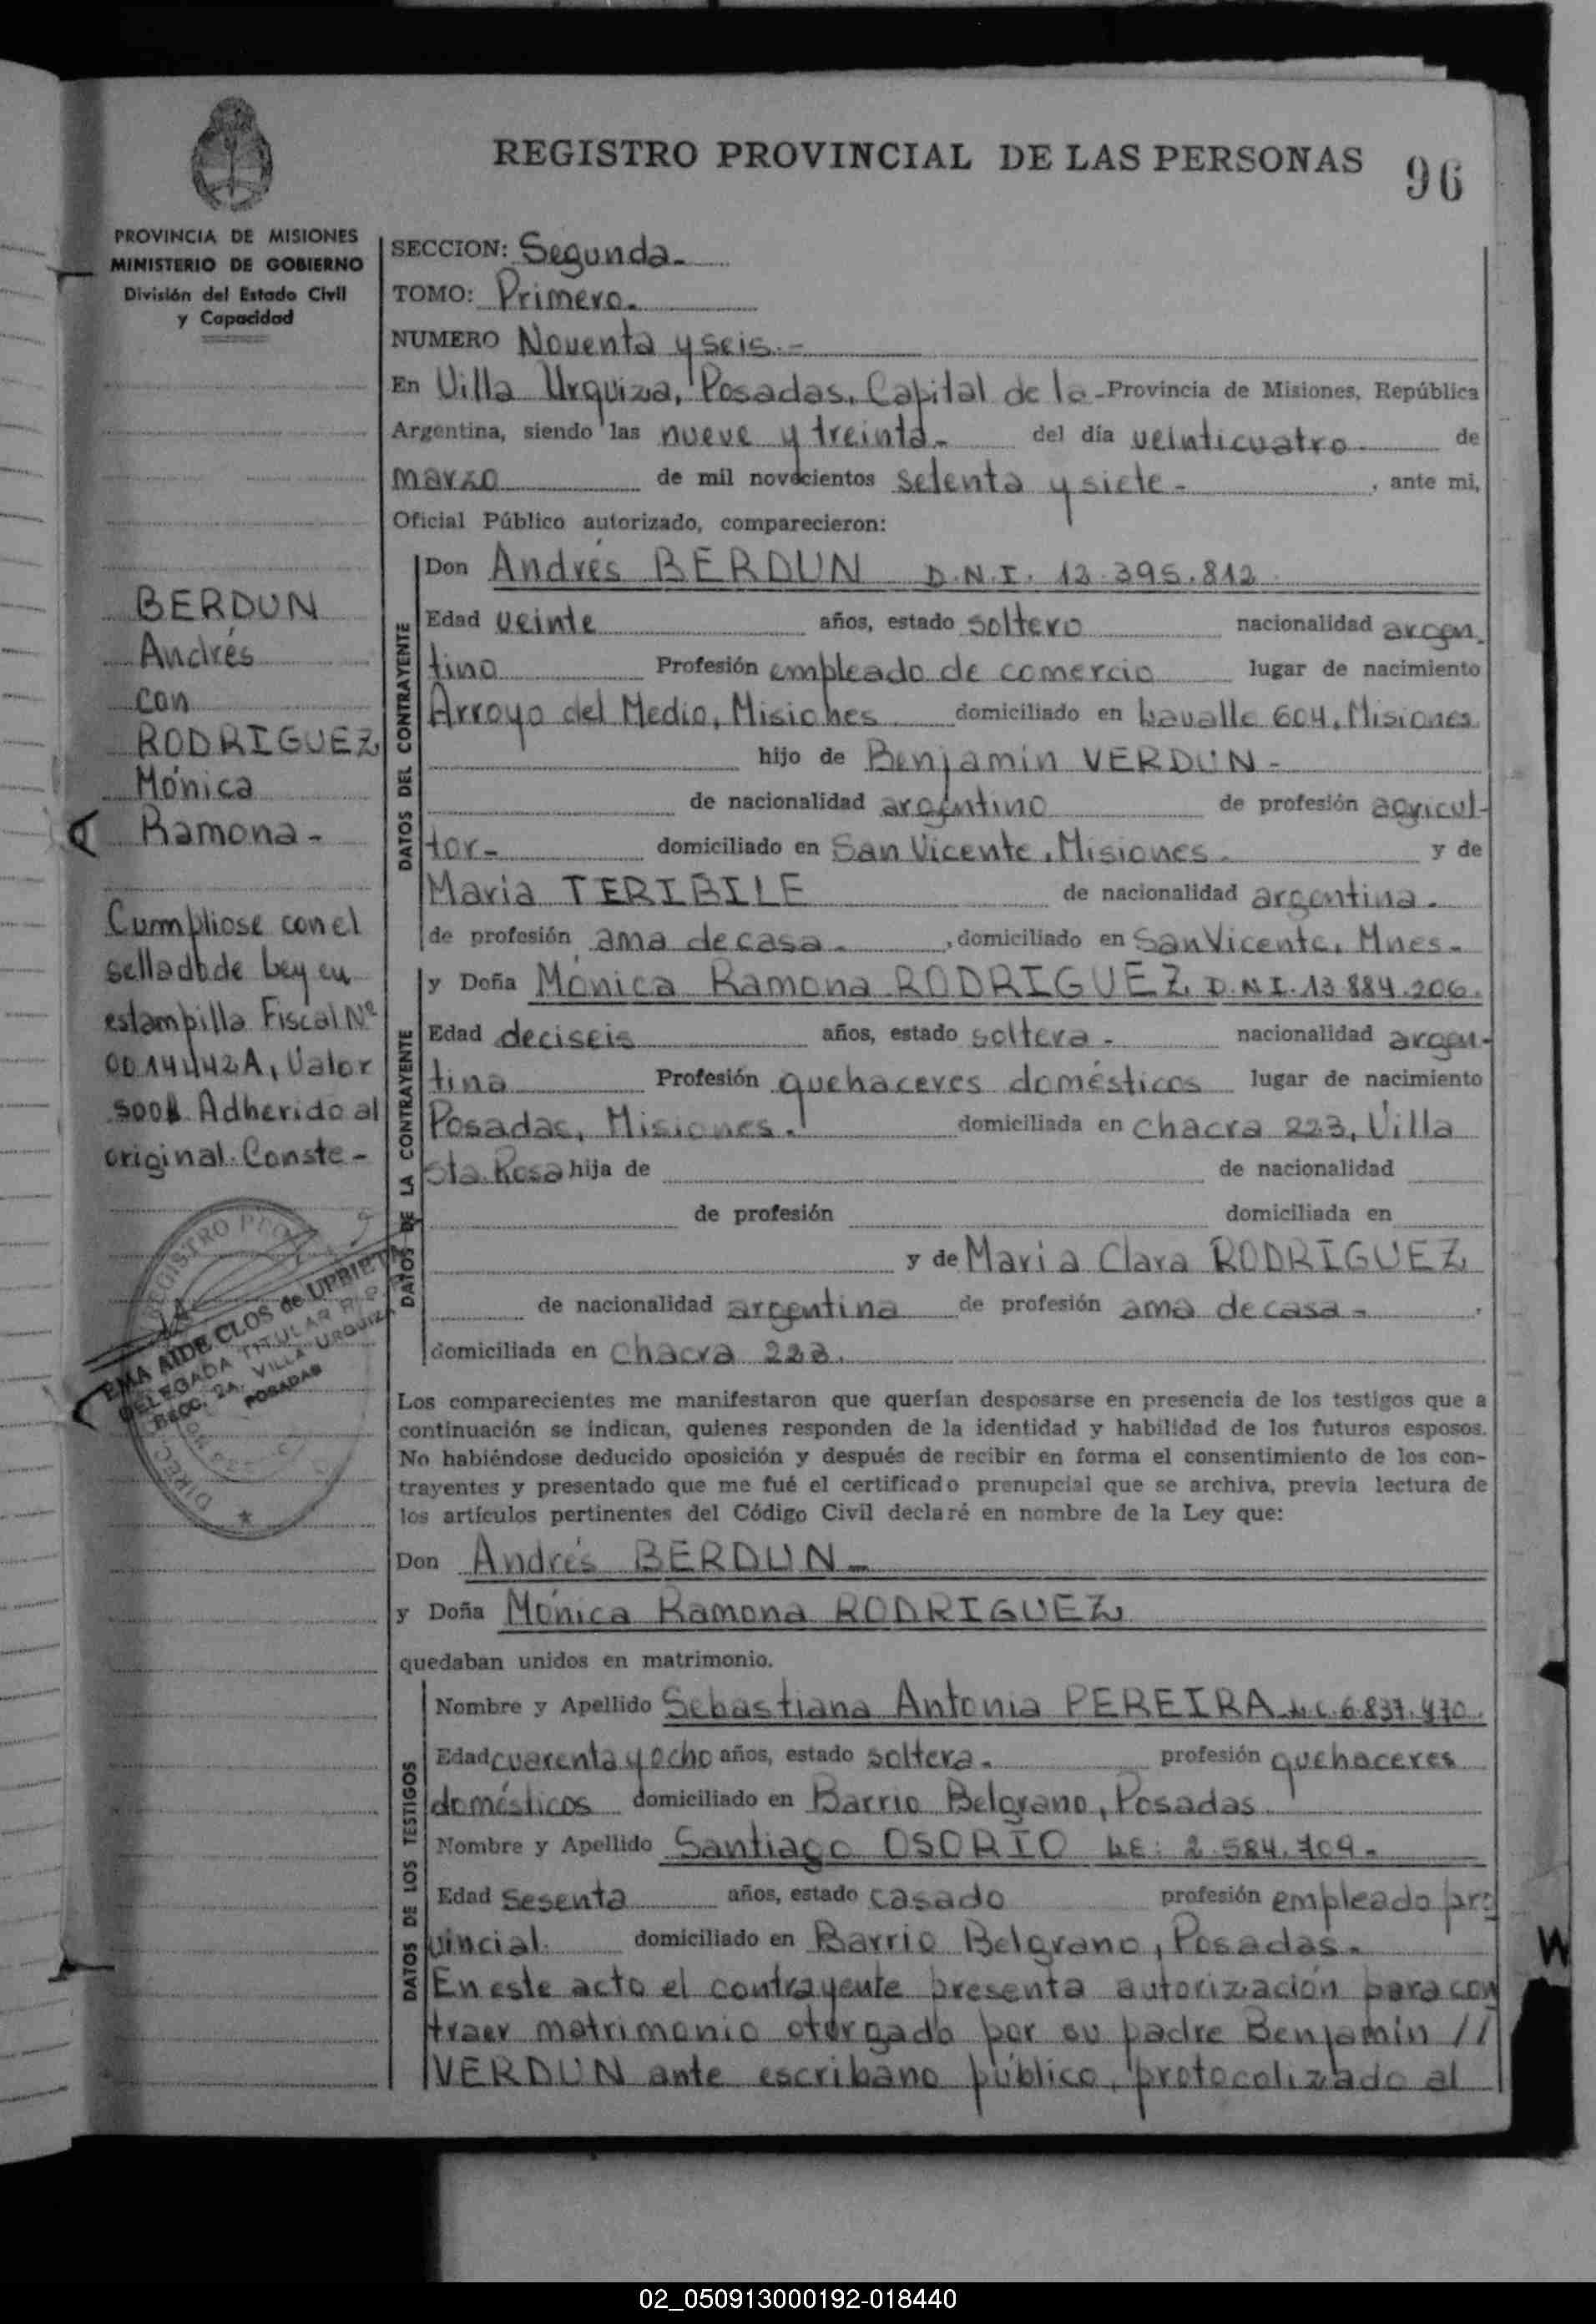 REGISTRO PROVINCIAL DE LAS PERSONAS
96
PROVINCIA DE MISIONES
MINISTERIO DE GOBIERNO
División del Estado Civil
y Capacidad
SECCION: Segunda.
TOMO: Primero.
NUMERO Noventa y seis.-
En Villa Urquiza, Posadas, Capital de la - Provincia de Misiones, República
Argentina, siendo las nueve y treinta- del día veinticuatro de
marzo de mil novecientos setenta y siete - , ante mi,
Oficial Público autorizado, comparecieron:
DATOS DEL CONTRAYENTE
Don Andrés BERDUN D.N.I. 12.395.812
Edad veinte años, estado soltero nacionalidad argen
tino Profesión empleado de comercio lugar de nacimiento
Arroyo del Medio, Misiones domiciliado en Lavalle 604, Misiones
hijo de Benjamín VERDUN -
de nacionalidad argentino de profesión agricul-
tor- domiciliado en San Vicente, Misiones. y de
Maria TERIBILE de nacionalidad argentina.
de profesión ama de casa. , domiciliado en San Vicente, Mnes-
DATOS DE LA CONTRAYENTE
y Doña Mónica Ramona RODRIGUEZ D.N.I. 13.884.206.
Edad deciseis años, estado soltera - nacionalidad argen-
tina Profesión quehaceres domésticos lugar de nacimiento
Posadas, Misiones. domiciliada en chacra 223, Villa
Sta. Rosa hija de de nacionalidad
de profesión domiciliada en
y de Maria Clara RODRIGUEZ
de nacionalidad argentina de profesión ama de casa - ,
domiciliada en chacra 223.
Los comparecientes me manifestaron que querían desposarse en presencia de los testigos que a
continuación se indican, quienes responden de la identidad y habilidad de los futuros esposos.
No habiéndose deducido oposición y después de recibir en forma el consentimiento de los con-
trayentes y presentado que me fué el certificado prenupcial que se archiva, previa lectura de
los artículos pertinentes del Código Civil declaré en nombre de la Ley que:
Don Andrés BERDUN
y Doña Mónica Ramona RODRIGUEZ
quedaban unidos en matrimonio.
DATOS DE LOS TESTIGOS
Nombre y Apellido Sebastiana Antonia PEREIRA L.C. 6.837.470.
Edad cuarenta y ocho años, estado soltera. profesión quehaceres
domésticos domiciliado en Barrio Belgrano, Posadas
Nombre y Apellido Santiago OSORIO L.E: 2.584.709-
Edad sesenta años, estado casado profesión empleado pro
vincial. domiciliado en Barrio Belgrano, Posadas.
En este acto el contrayente presenta autorización para con
traer matrimonio otorgado por su padre Benjamín //
VERDUN ante escribano público, protocolizado al
BERDUN
Andrés
con
RODRIGUEZ
Mónica
Ramona -
Cumpliose con el
sellado de Ley en
estampilla Fiscal Nº
0014442A, Valor
500$ Adherido al
original. Conste -
REGISTRO
EMA AIDE CLOS de UPRIETA
DELEGADA TITULAR
SECC. 2A. VILLA URQUIZA
POSADAS
02_050913000192-018440